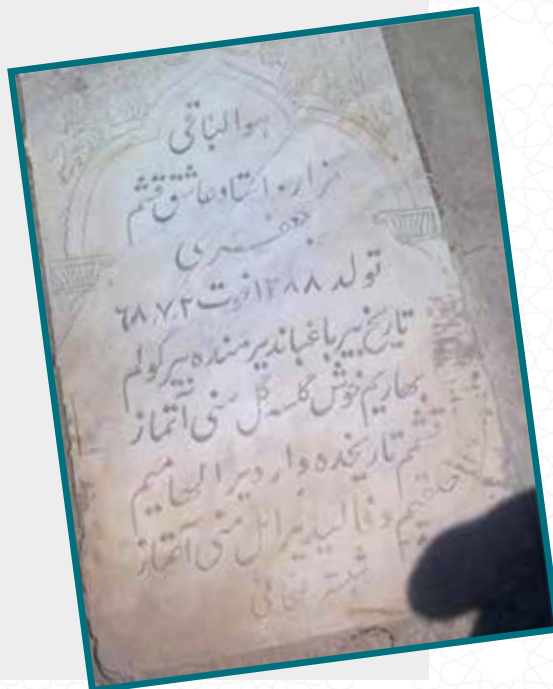 هوالباقی
مزار: استاد عاشق قشم
جعفری
تولد ۱۲۸۸ فوت ۶۸.۷.۲
تاریخ بیر باغباندیر منده بیر گولم
بهاریم خوش گلسه گل منی آتماز
قشمم تاریخده واردیر الهامیم
خلقیم وفالیدیر ائل منی آتماز